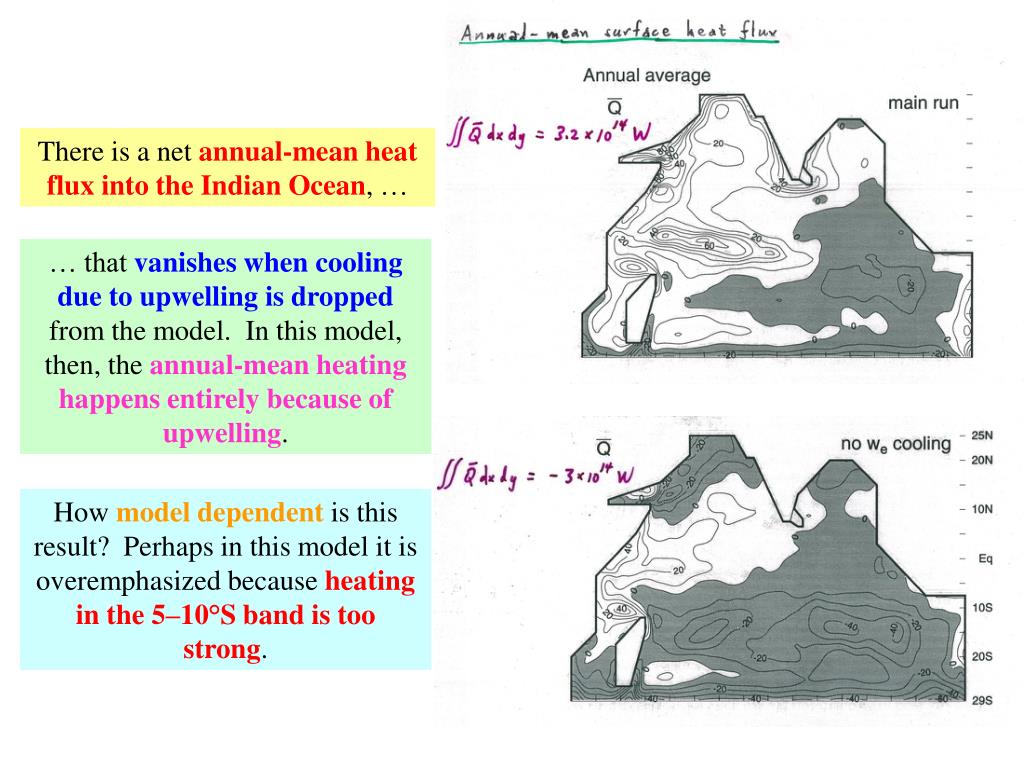 Annual-mean surface heat flux
Annual average
Q̅
main run
∬Q̅ dx dy = 3.2 x 10¹⁴ W
There is a net annual-mean heat
flux into the Indian Ocean, …
… that vanishes when cooling
due to upwelling is dropped
from the model. In this model,
then, the annual-mean heating
happens entirely because of
upwelling.
Q̅
no wₑ cooling
∬Q̅ dx dy = - 3 x 10¹⁴ W
25N
20N
10N
Eq
10S
20S
29S
How model dependent is this
result? Perhaps in this model it is
overemphasized because heating
in the 5–10°S band is too
strong.
20
40
20
40
20
40
60
20
0
-20
0
0
-20
-20
-20
0
40
20
40
0
-20
-40
-40
-20
-20
-20
-40
-20
-40
-60